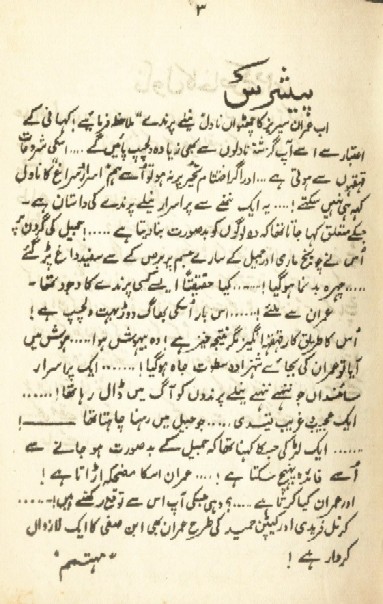 ۳
پیشرس
اب عمران سیریز کا چھٹواں ناول ”نیلے پرندے“ ملاحظہ فرمایئے! کہانی کے
اعتبار سے اسے آپ گزشتہ ناولوں سے بھی زیادہ دلچسپ پائیں گے .... اسکی شروعات
قہقہوں سے ہوتی ہے ... اور اگر اختتام تحیر پر نہ ہو تو اسے ہم ”اسرار و سراغ“ کا ناول
کہہ ہی نہیں سکتے! .... یہ ایک ننھے سے پراسرار نیلے پرندے کی داستان ہے۔
جسکے متعلق کہا جاتا تھا کہ وہ لوگوں کو بدصورت بنا دیتا ہے .....! جمیل کی گردن پر
اُسی نے چونچ ماری اور جمیل کے سارے جسم پر برص کے سے سفید داغ پڑ گئے
..... چہرہ بدنما ہو گیا! ...... کیا حقیقتاً ایسے کسی پرندے کا وجود تھا۔
عمران سے ملئے! ...... اس بار اُسکی بھاگ دوڑ بہت دلچسپ ہے!
اُس کا طریق کار قہقہہ انگیز مگر نتیجہ خیز ہے! وہ بیہوش ہوا .... ہوش میں
آیا تو عمران کی بجائے شہزادہ سطوت جاہ ہو گیا! ....... ایک پراسرار
سائنسداں جو ننھے ننھے نیلے پرندوں کو آگ میں ڈال رہا تھا! ......
ایک عجیب و غریب قیدی ..... جو جیل میں رہنا چاہتا تھا ـــــــ!
...... ایک لڑکی جسکا کہنا تھا کہ جمیل کے بدصورت ہو جانے سے
اُسے فائدہ پہنچ سکتا ہے! .... عمران اسکا مضحکہ اڑاتا ہے!
اور عمران کیا کرتا ہے .... ؟ وہی جسکی آپ اس سے توقع رکھتے ہیں! ......
کرنل فریدی اور کیپٹن حمید کی طرح عمران بھی ابن صفی کا ایک لازوال
کردار ہے! ”مہتمم“